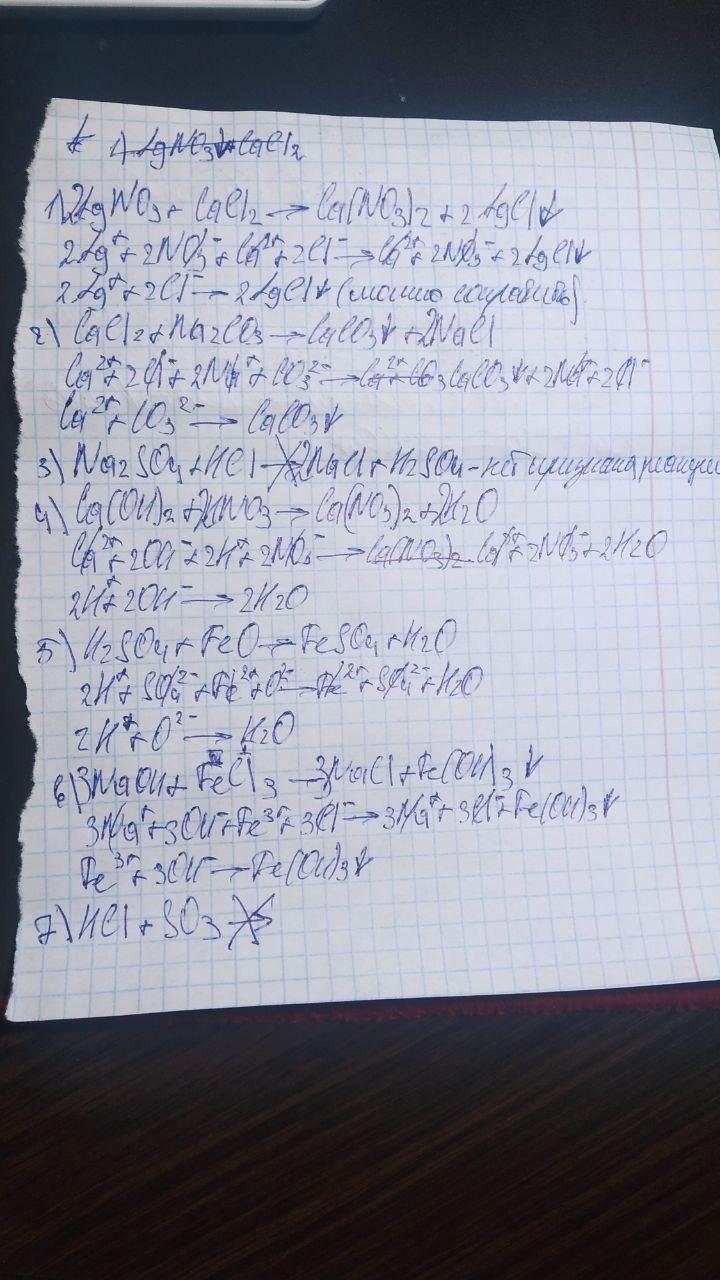 1) AgNO₃ + CaCl₂
1) 2AgNO₃ + CaCl₂ → Ca(NO₃)₂ + 2AgCl↓
2Ag⁺ + 2NO₃⁻ + Ca²⁺ + 2Cl⁻ → Ca²⁺ + 2NO₃⁻ + 2AgCl↓
2Ag⁺ + 2Cl⁻ → 2AgCl↓ (можно сократить)
2) CaCl₂ + Na₂CO₃ → CaCO₃↓ + 2NaCl
Ca²⁺ + 2Cl⁻ + 2Na⁺ + CO₃²⁻ → CaCO₃↓ + 2Na⁺ + 2Cl⁻
Ca²⁺ + CO₃²⁻ → CaCO₃↓
3) Na₂SO₄ + HCl ↛ 2NaCl + H₂SO₄ - нет признака реакции
4) Ca(OH)₂ + 2HNO₃ → Ca(NO₃)₂ + 2H₂O
Ca²⁺ + 2OH⁻ + 2H⁺ + 2NO₃⁻ → Ca²⁺ + 2NO₃⁻ + 2H₂O
2H⁺ + 2OH⁻ → 2H₂O
5) H₂SO₄ + FeO → FeSO₄ + H₂O
2H⁺ + SO₄²⁻ + Fe²⁺ + O²⁻ → Fe²⁺ + SO₄²⁻ + H₂O
2H⁺ + O²⁻ → H₂O
6) 3NaOH + FeCl₃ → 3NaCl + Fe(OH)₃↓
3Na⁺ + 3OH⁻ + Fe³⁺ + 3Cl⁻ → 3Na⁺ + 3Cl⁻ + Fe(OH)₃↓
Fe³⁺ + 3OH⁻ → Fe(OH)₃↓
7) HCl + SO₃ ↛